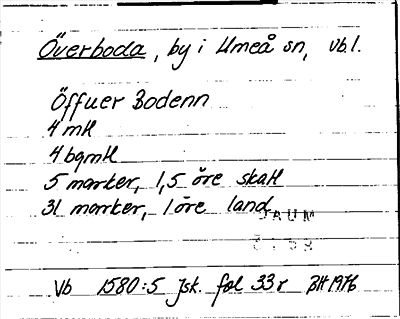 Överboda, by i Umeå sn, vb.l.
Öffuer Bodenn
4 mtl
4 bgmtl
5 marker, 1,5 öre skatt
31 marker, 1 öre land
DAUM
Vb 1580:5 Jsk. fol 33 r BH 1976